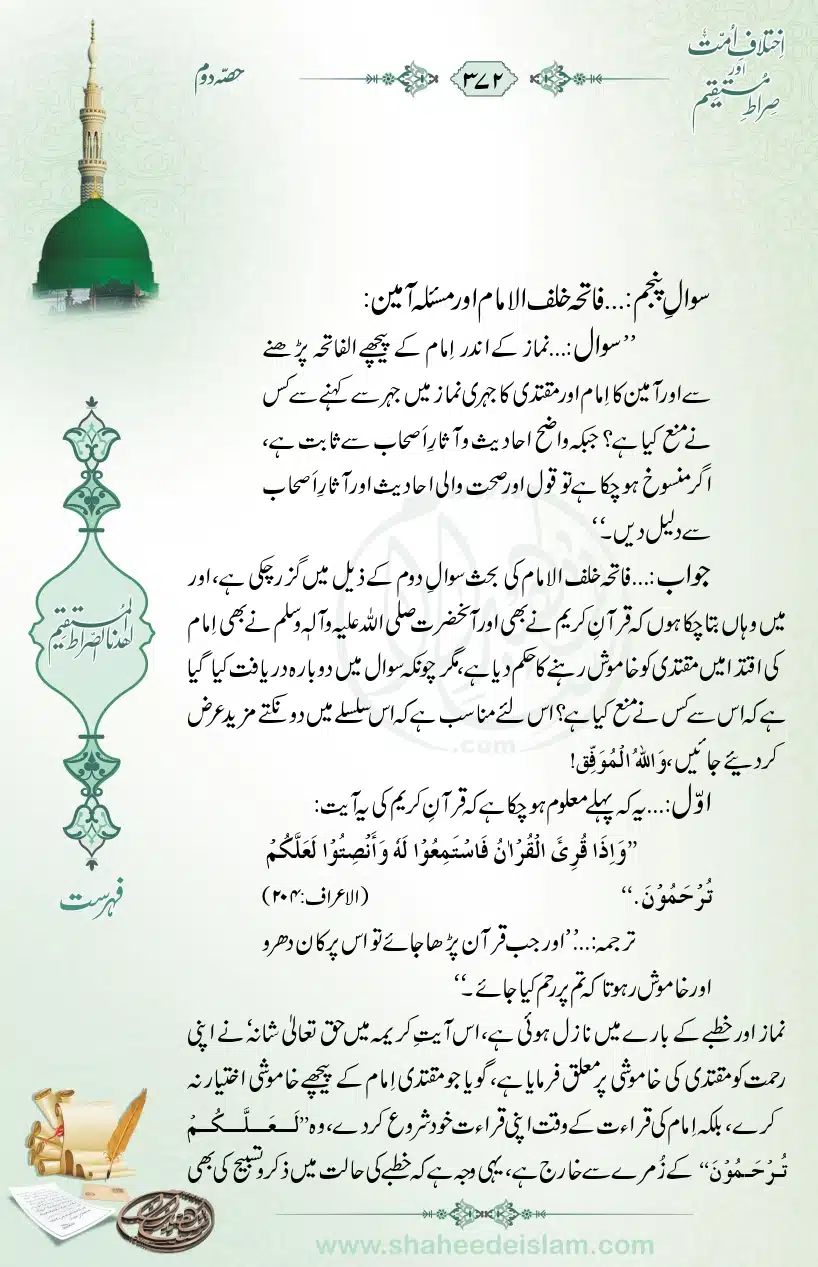 اِختلافِ اُمّت
اور
صِراطِ مُستقیم
۳۷۲
حصّہ دوم
سوالِ پنجم:...فاتحہ خلف الامام اور مسئلہ آمین:
’’سوال:...نماز کے اندر اِمام کے پیچھے الفاتحہ پڑھنے
سے اور آمین کا اِمام اور مقتدی کا جہری نماز میں جہر سے کہنے سے کس
نے منع کیا ہے؟ جبکہ واضح احادیث و آثارِ اَصحاب سے ثابت ہے،
اگر منسوخ ہوچکا ہے تو قول اور صحت والی احادیث اور آثارِ اَصحاب
سے دلیل دیں۔‘‘
جواب:...فاتحہ خلف الامام کی بحث سوالِ دوم کے ذیل میں گزر چکی ہے، اور
میں وہاں بتاچکا ہوں کہ قرآنِ کریم نے بھی اور آنحضرت صلی اللہ علیہ وآلہ وسلم نے بھی اِمام
کی اقتدا میں مقتدی کو خاموش رہنے کا حکم دیا ہے، مگر چونکہ سوال میں دوبارہ دریافت کیا گیا
ہے کہ اس سے کس نے منع کیا ہے؟ اس لئے مناسب ہے کہ اس سلسلے میں دو نکتے مزید عرض
کردیئے جائیں، وَاللهُ الْمُوَفِّق!
اوّل:...یہ کہ پہلے معلوم ہوچکا ہے کہ قرآنِ کریم کی یہ آیت:
’’وَاِذَا قُرِئَ الْقُرْاٰنُ فَاسْتَمِعُوْا لَهٗ وَأَنْصِتُوْا لَعَلَّكُمْ
تُرْحَمُوْنَ.‘‘ (الاعراف:۲۰۴)
ترجمہ:...’’اور جب قرآن پڑھا جائے تو اس پر کان دھرو
اور خاموش رہو تاکہ تم پر رحم کیا جائے۔‘‘
نماز اور خطبے کے بارے میں نازل ہوئی ہے، اس آیتِ کریمہ میں حق تعالیٰ شانہٗ نے اپنی
رحمت کو مقتدی کی خاموشی پر معلق فرمایا ہے، گویا جو مقتدی اِمام کے پیچھے خاموشی اختیار نہ
کرے، بلکہ اِمام کی قراءت کے وقت اپنی قراءت خود شروع کردے، وہ ’’لَعَلَّكُمْ
تُرْحَمُوْنَ‘‘ کے زُمرے سے خارج ہے، یہی وجہ ہے کہ خطبے کی حالت میں ذکر و تسبیح کی بھی
اھدنا الصراط المستقیم
فہرست
.com
www.shaheedeislam.com